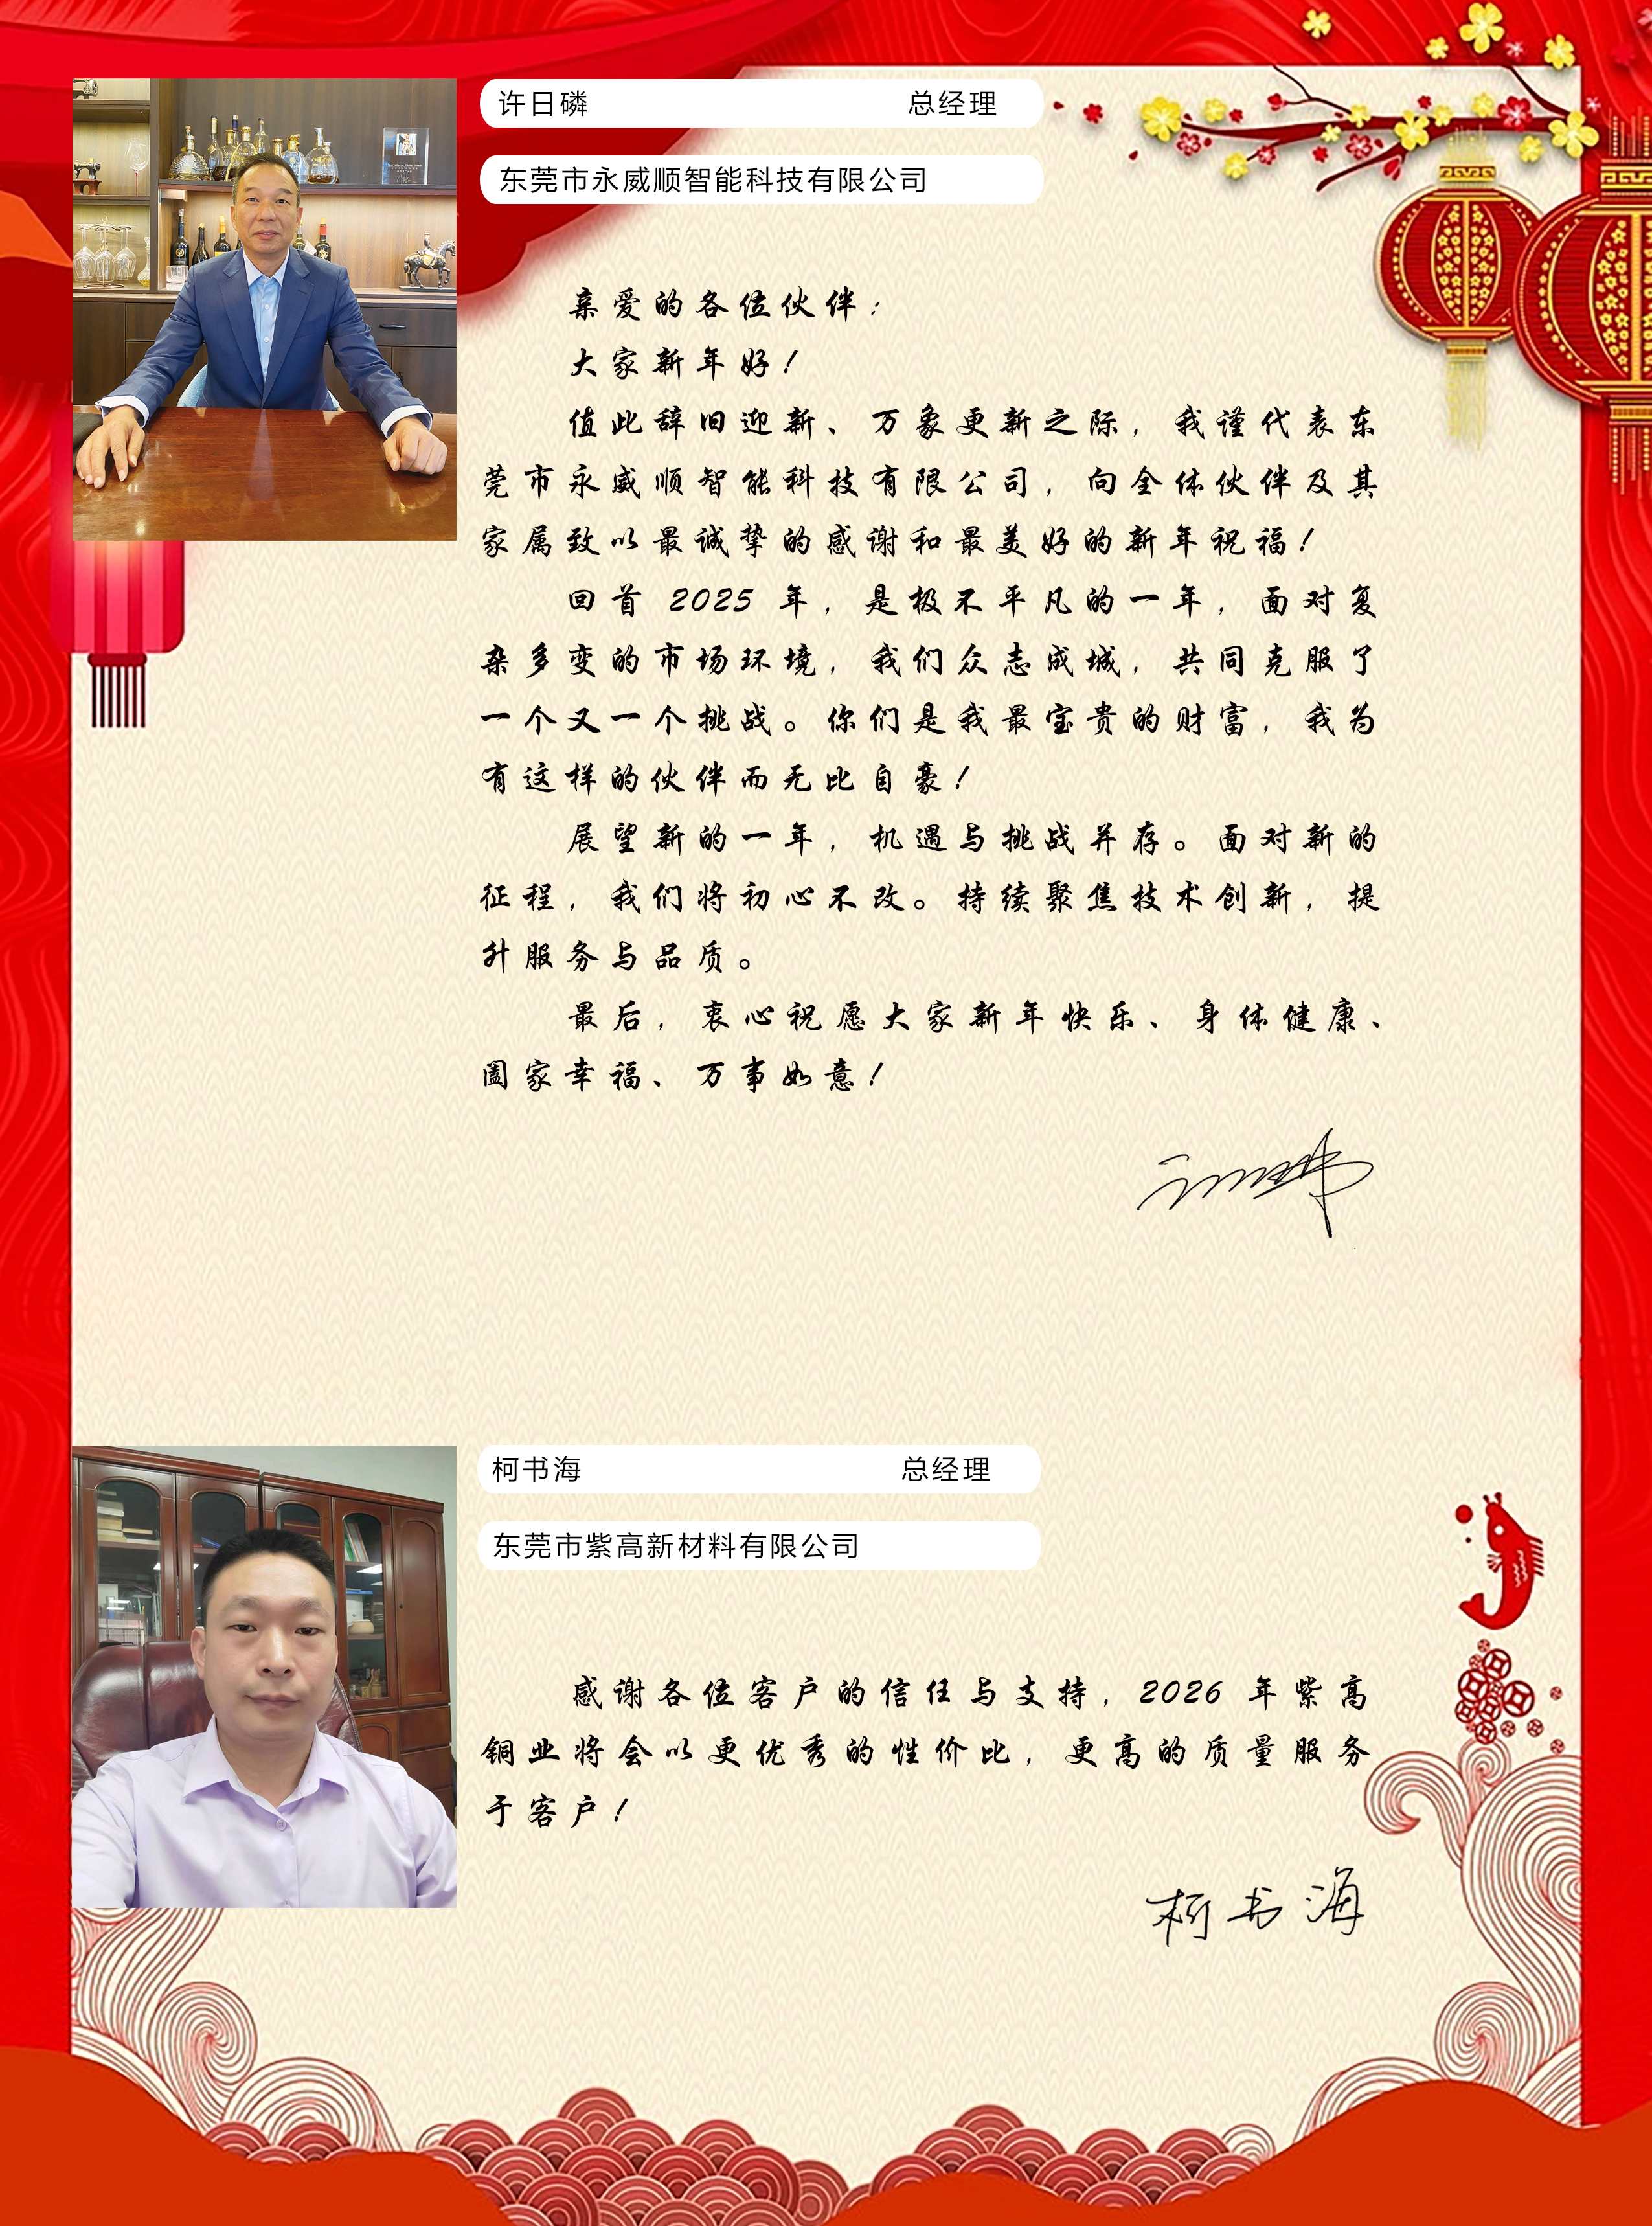 许日磷 总经理
东莞市永威顺智能科技有限公司
亲爱的各位伙伴：
大家新年好！
值此辞旧迎新、万象更新之际，我谨代表东
莞市永威顺智能科技有限公司，向全体伙伴及其
家属致以最诚挚的感谢和最美好的新年祝福！
回首 2025 年，是极不平凡的一年，面对复
杂多变的市场环境，我们众志成城，共同克服了
一个又一个挑战。你们是我最宝贵的财富，我为
有这样的伙伴而无比自豪！
展望新的一年，机遇与挑战并存。面对新的
征程，我们将初心不改。持续聚焦技术创新，提
升服务与品质。
最后，衷心祝愿大家新年快乐、身体健康、
阖家幸福、万事如意！
柯书海 总经理
东莞市紫高新材料有限公司
感谢各位客户的信任与支持，2026 年紫高
铜业将会以更优秀的性价比，更高的质量服务
于客户！
柯书海